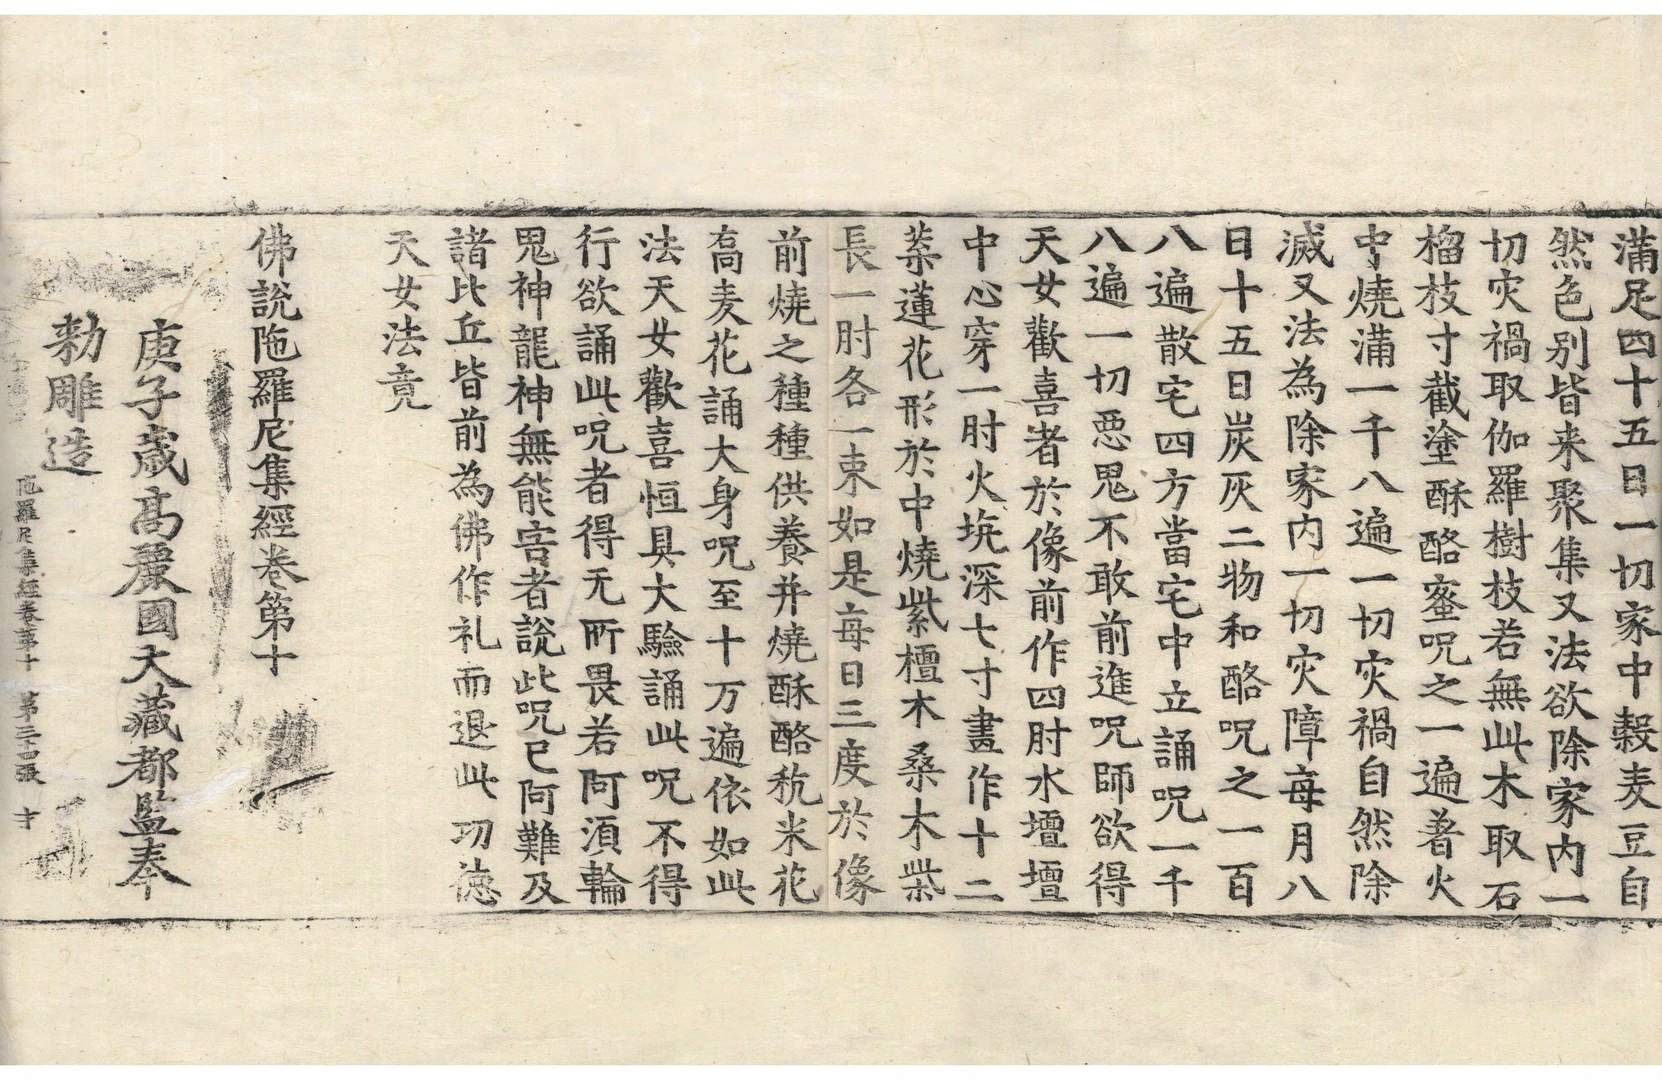 滿足四十五日一切家中穀麦豆自
然色別皆来聚集又法欲除家内一
切灾禍取伽羅樹枝若無此木取石
榴枝寸截塗酥酪蜜呪之一遍著火
中燒滿一千八遍一切灾禍自然除
滅又法為除家内一切灾障每月八
日十五日炭灰二物和酪呪之一百
八遍散宅四方當宅中立誦呪一千
八遍一切惡鬼不敢前進呪師欲得
天女歡喜者於像前作四肘水壇壇
中心穿一肘火坑深七寸畫作十二
葉蓮花形於中燒紫檀木桑木柴
長一肘各一束如是每日三度於像
前燒之種種供養并燒酥酪秔米花
高麦花誦大身呪至十万遍依如此
法天女歡喜恒具大驗誦此呪不得
行欲誦此呪者得无所畏若阿湏輪
鬼神龍神無能害者說此呪已阿難及
諸比丘皆前為佛作礼而退此功德
天女法竟
佛說陁羅尼集經卷第十
庚子歲高麗國大藏都監奉
勅雕造
陁羅尼集經卷第十 第三十四張 才